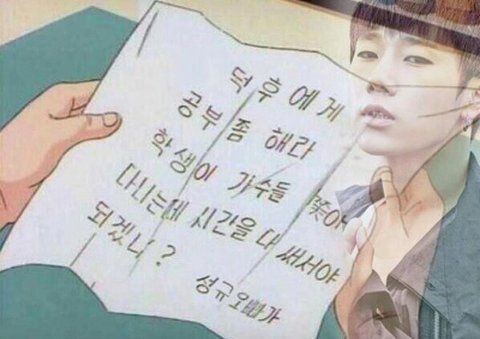 덕후에게
공부 좀 해라
학생이 가수들 쫓아
다니는데 시간을 다 써서야
되겠니?
성규오빠가